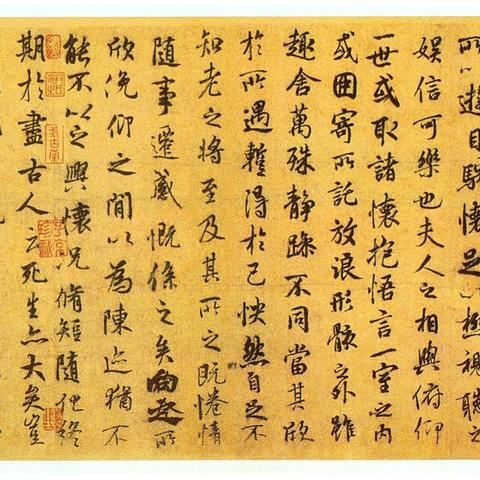 所以遊目騁懷足以極視聽之
娛信可樂也夫人之相與俯仰
一世或取諸懷抱悟言一室之內
或因寄所託放浪形骸之外雖
趣舍萬殊靜躁不同當其欣
於所遇蹔得於己怏然自足不
知老之將至及其所之既惓情
隨事遷感慨係之矣向之所
欣俛仰之閒以為陳迹猶不
能不以之興懷況脩短隨化終
期於盡古人云死生亦大矣豈